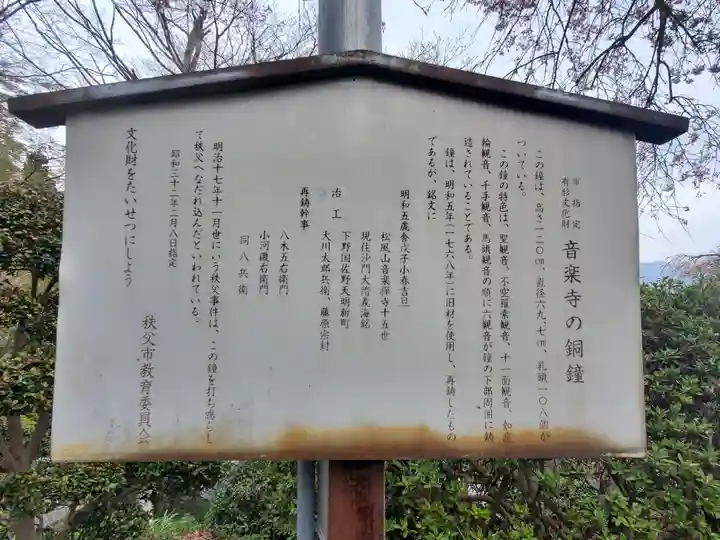 市指定
有形文化財
音楽寺の銅鐘
この鐘は、高さ一二〇㎝、直径六九、七㎝、乳頭一〇八個が
ついている。
この鐘の特色は、聖観音、不空羂索観音、十一面観音、如意
輪観音、千手観音、馬頭観音の順に六観音が鐘の下部周囲に鋳
造されていることである。
鐘は、明和五年(一七六八年)に旧材を使用し、再鋳したもの
であるが、銘文に
明和五歳舎戊子小春吉旦
松風山音楽禅寺十五世
現住沙門大 義海銘
下野国佐野天明新町
冶工 大川太郎兵衛、藤原宗封
再鋳幹事
八木五右衛門
小河磯右衛門
同八兵衛
明治十七年十一月世にいう秩父事件は、この鐘を打ち鳴らし
て秩父へなだれ込んだといわれている。
昭和三十二年二月八日指定
文化財をたいせつにしよう
秩父市教育委員会